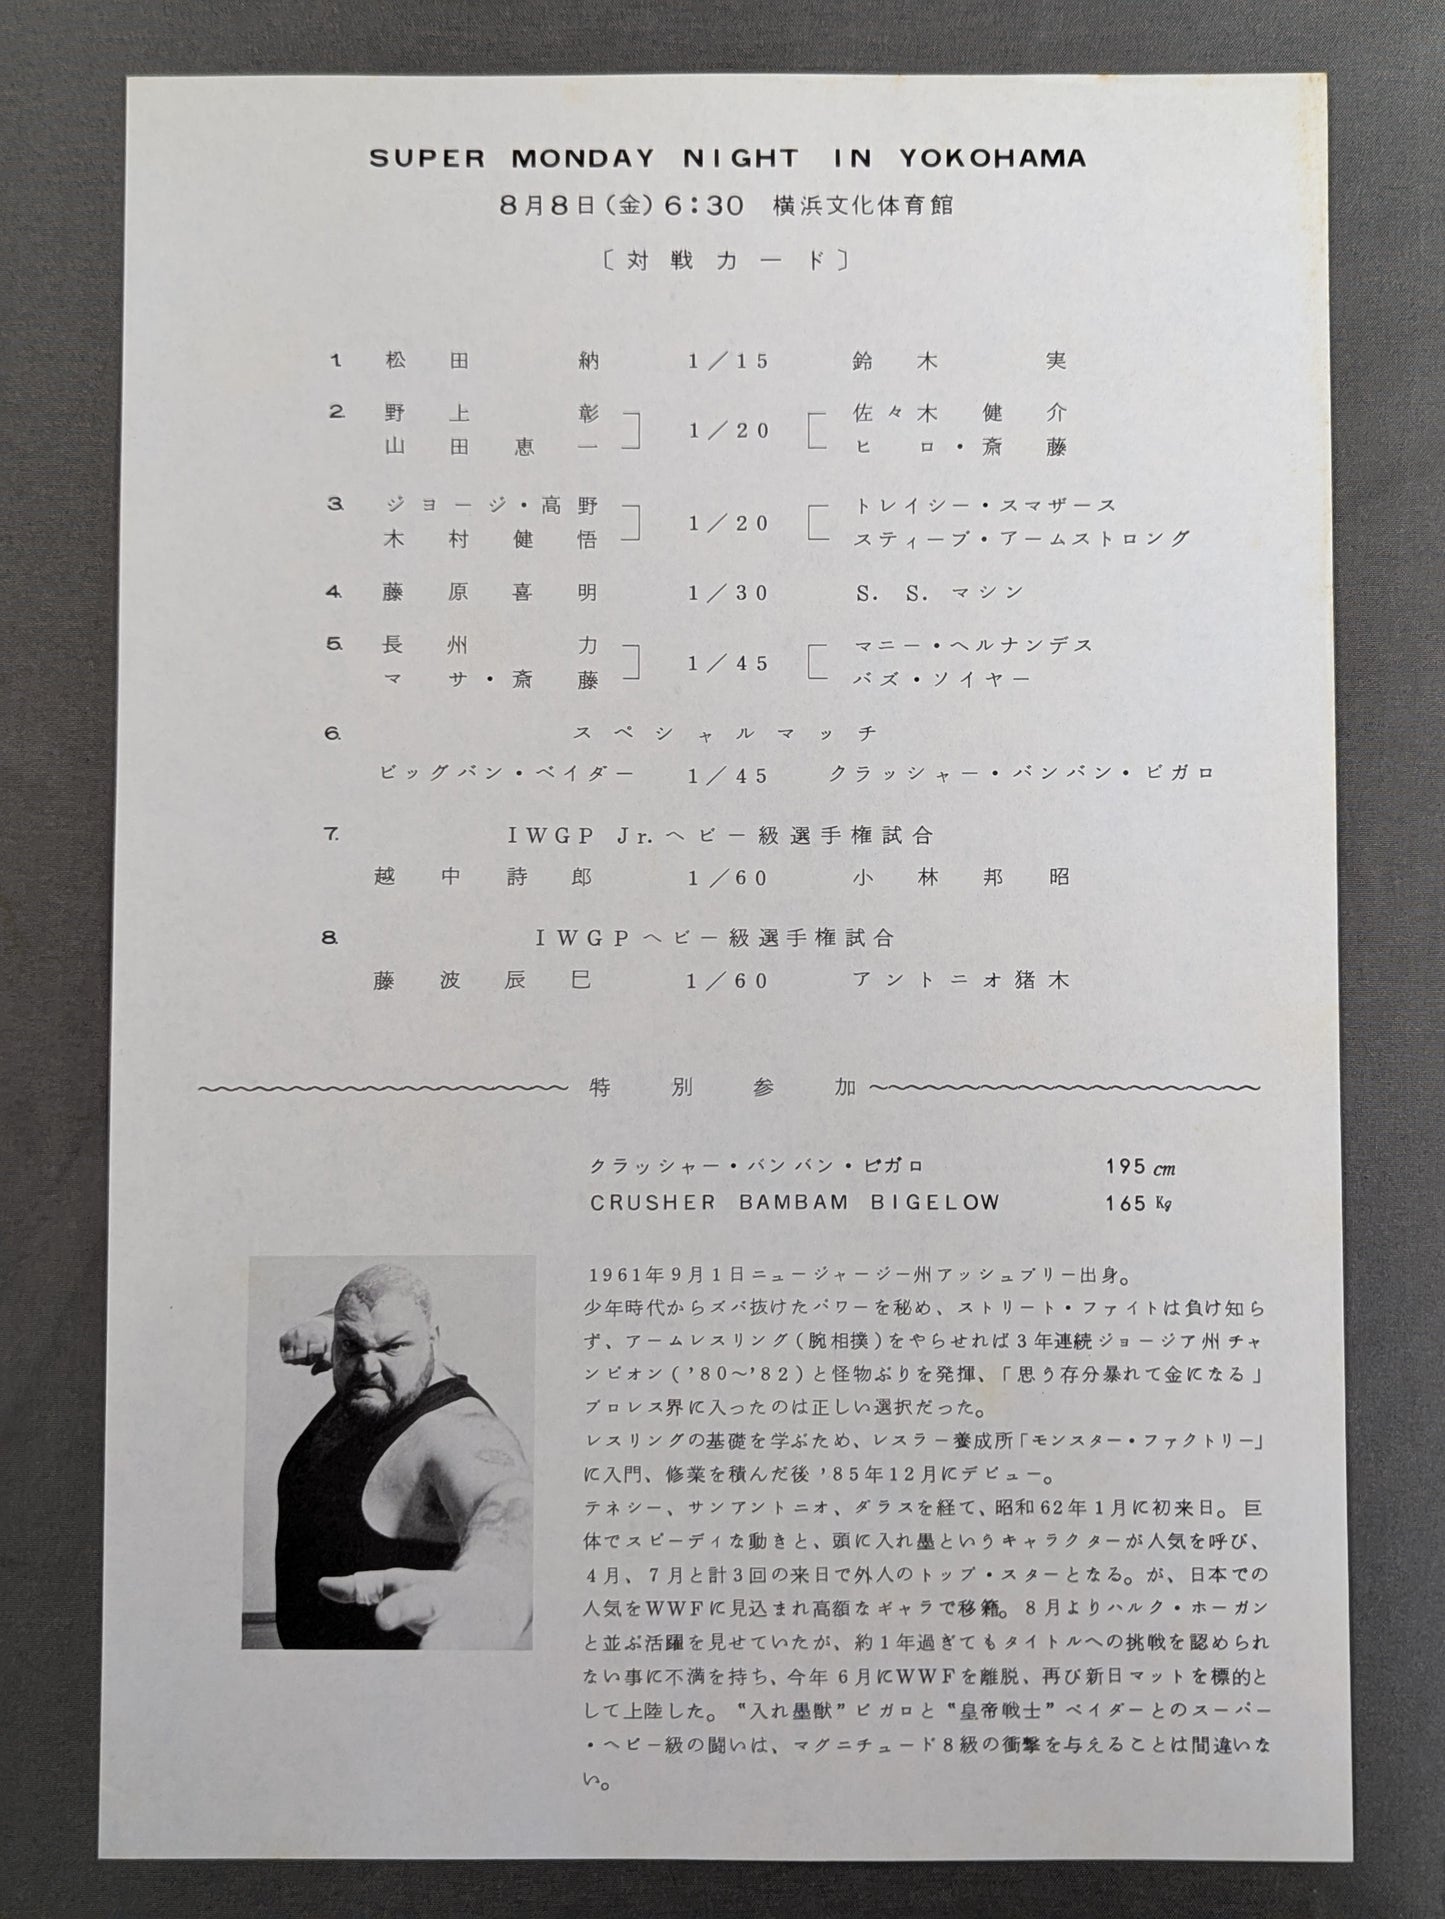 SUPER MONDAY NIGHT IN YOKOHAMA
8月8日(金)6:30 横浜文化体育館
〔対戦カード〕
1. 松田納 1/15 鈴木実
2. 野上彰 1/20 佐々木健介
山田恵一 ヒロ・斎藤
3. ジョージ・高野 1/20 トレイシー・スマザース
木村健悟 スティーブ・アームストロング
4. 藤原喜明 1/30 S.S.マシン
5. 長州力 1/45 マニー・ヘルナンデス
マサ・斎藤 バズ・ソイヤー
6. スペシャルマッチ
ビッグバン・ベイダー 1/45 クラッシャー・バンバン・ビガロ
7. IWGP Jr.ヘビー級選手権試合
越中詩郎 1/60 小林邦昭
8. IWGPヘビー級選手権試合
藤波辰巳 1/60 アントニオ猪木
特別参加
クラッシャー・バンバン・ビガロ 195cm
CRUSHER BAMBAM BIGELOW 165Kg
1961年9月1日ニュージャージー州アッシュブリー出身。
少年時代からズバ抜けたパワーを秘め、ストリート・ファイトは負け知ら
ず、アームレスリング(腕相撲)をやらせれば3年連続ジョージア州チャ
ンピオン('80～'82)と怪物ぶりを発揮、「思う存分暴れて金になる」
プロレス界に入ったのは正しい選択だった。
レスリングの基礎を学ぶため、レスラー養成所「モンスター・ファクトリー」
に入門、修業を積んだ後'85年12月にデビュー。
テネシー、サンアントニオ、ダラスを経て、昭和62年1月に初来日。巨
体でスピーディな動きと、頭に入れ墨というキャラクターが人気を呼び、
4月、7月と計3回の来日で外人のトップ・スターとなる。が、日本での
人気をWWFに見込まれ高額なギャラで移籍。8月よりハルク・ホーガン
と並ぶ活躍を見せていたが、約1年過ぎてもタイトルへの挑戦を認められ
ない事に不満を持ち、今年6月にWWFを離脱、再び新日マットを標的と
して上陸した。〝入れ墨獣〟ビガロと〝皇帝戦士〟ベイダーとのスーパー
・ヘビー級の闘いは、マグニチュード8級の衝撃を与えることは間違いな
い。